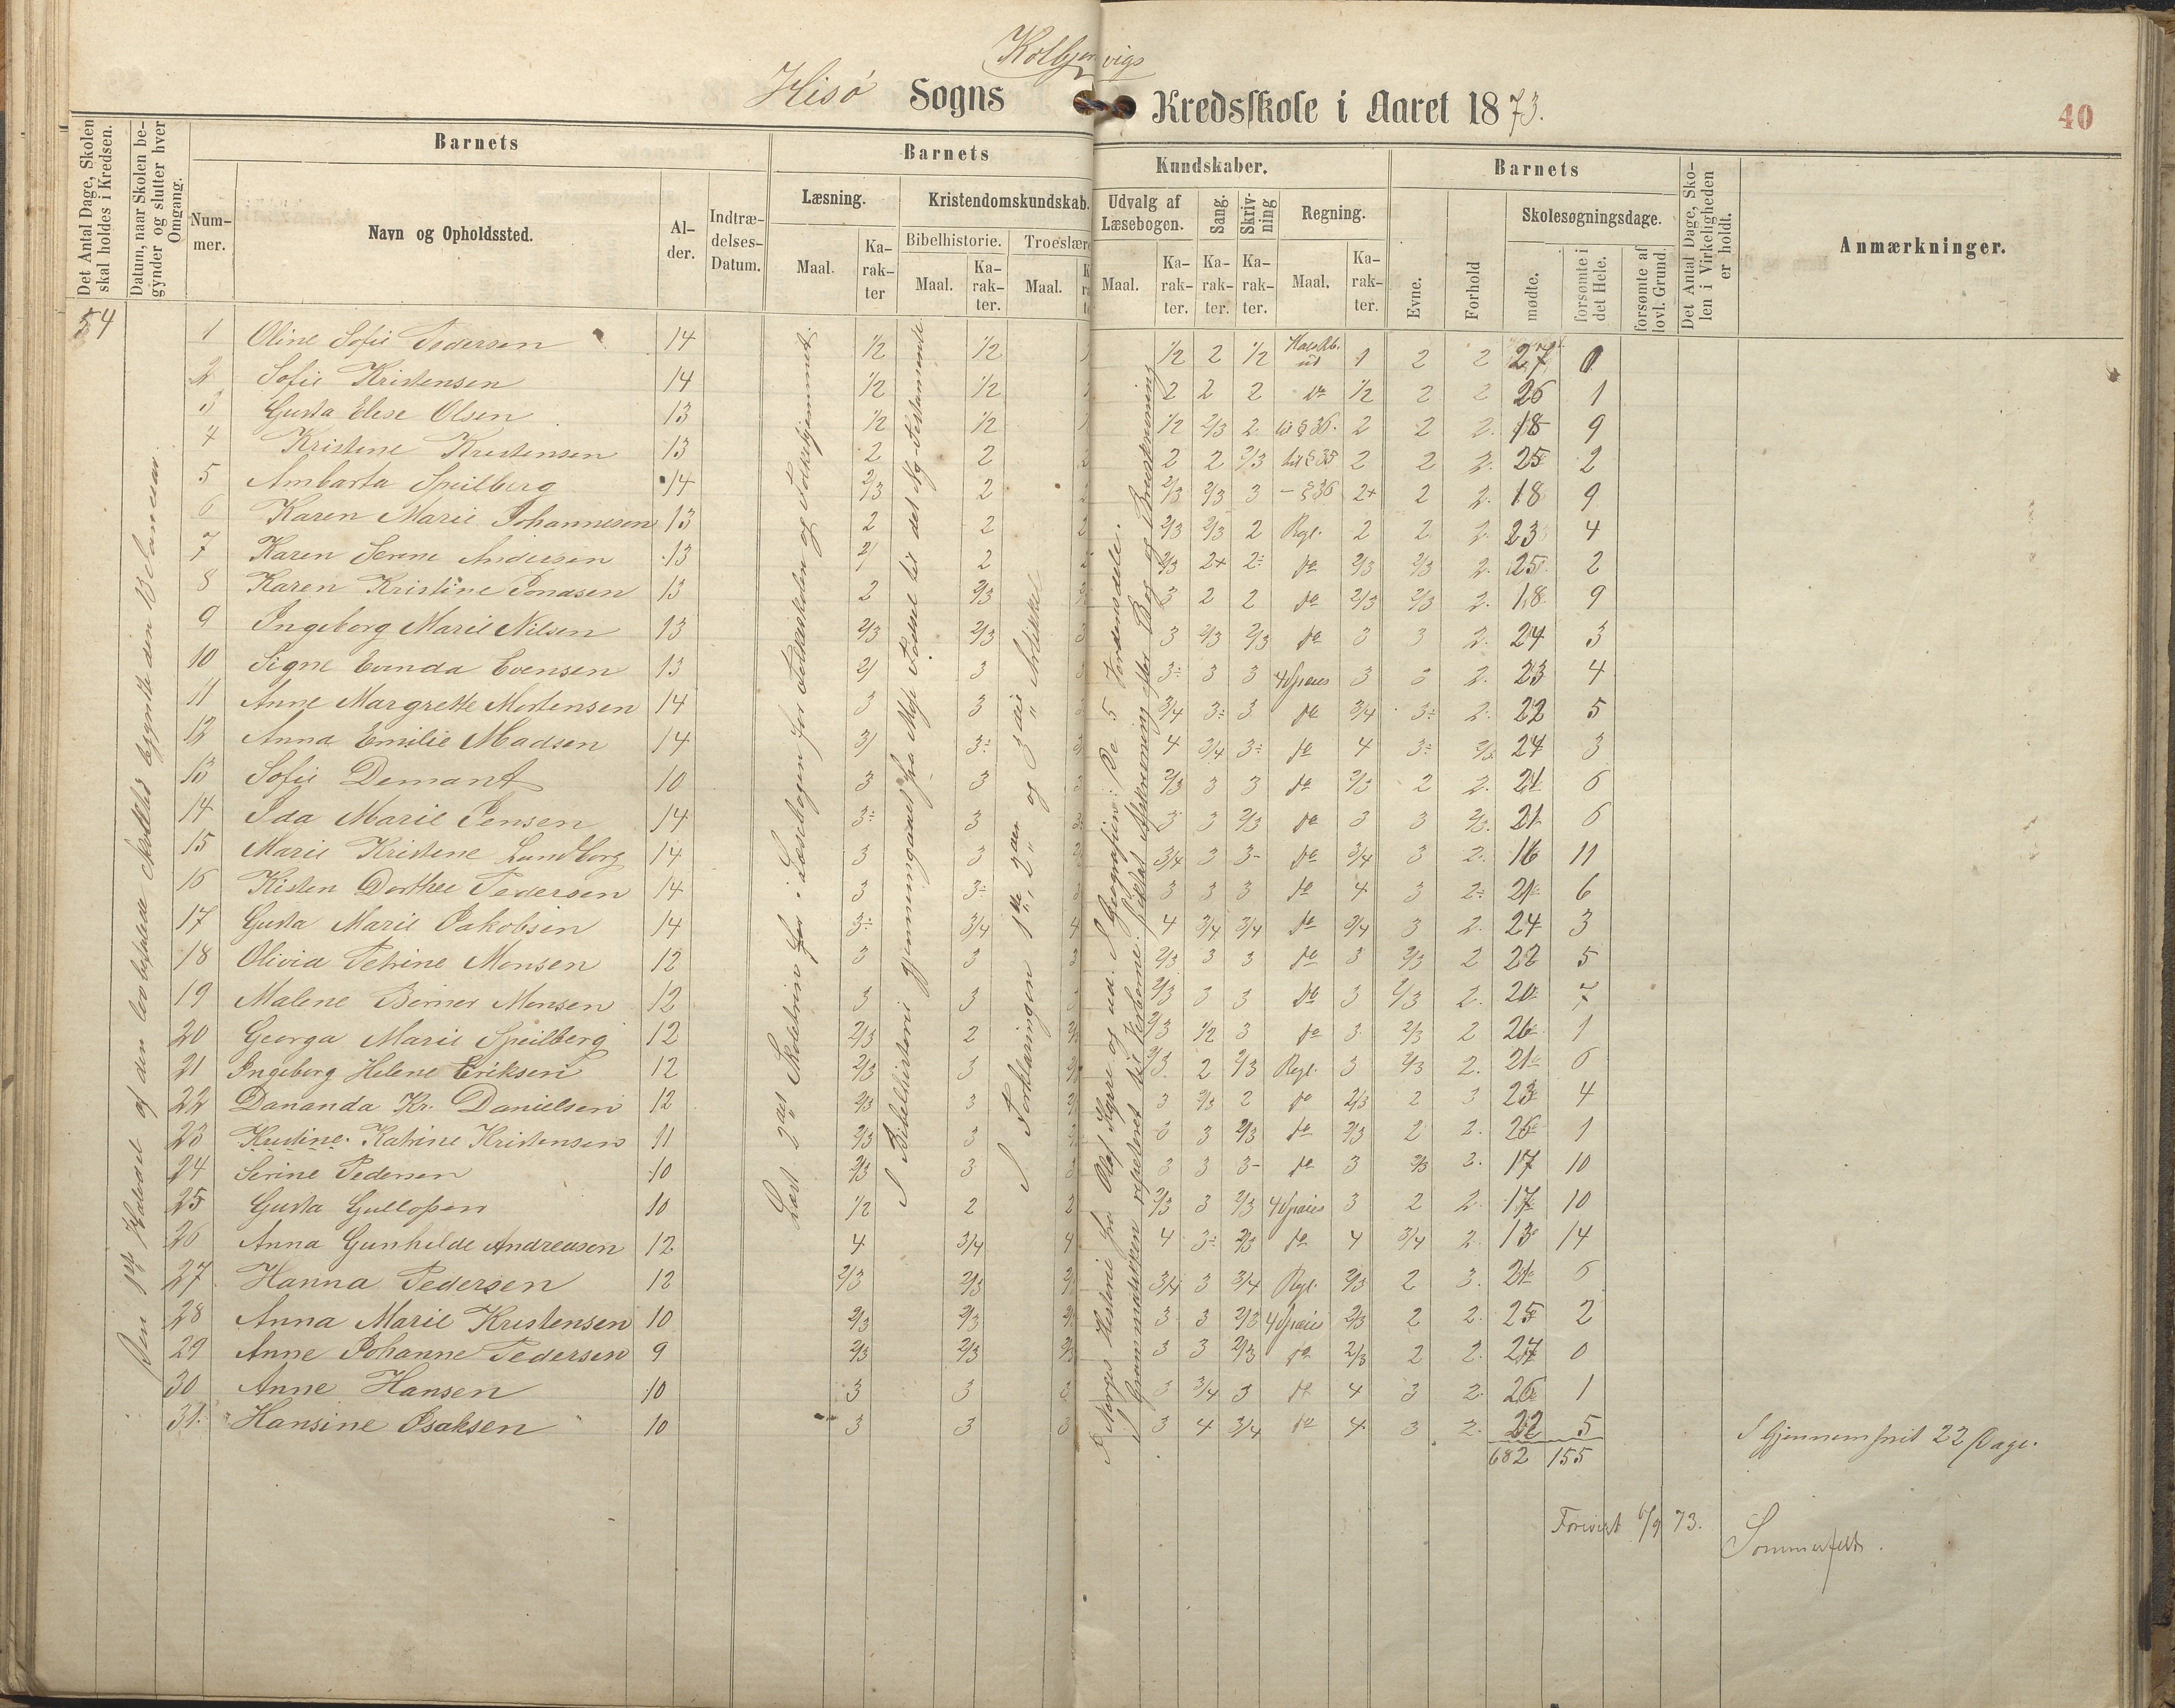 Kolbjørnvigs
Hisø Sogns Kredsskole i Aaret 1873.
40
Det Antal Dage, Skolen skal holdes i Kredsen.
Datum, naar Skolen begynder og slutter hver Omgang.
Barnets
Nummer.
Navn og Opholdssted.
Alder.
Indtrædelses-Datum.
Barnets Kundskaber.
Læsning.
Maal.
Karakter
Kristendomskundskab.
Bibelhistorie.
Maal.
Karakter.
Troeslære
Maal.
Udvalg af Læsebogen.
Maal.
Karakter.
Sang.
Karakter.
Skrivning
Karakter.
Regning.
Maal.
Karakter.
Barnets
Evne.
Forhold
Skolesøgningsdage.
mødte.
forsømte i det Hele.
forsømte af lovl. Grund.
Det Antal Dage, Skolen i Virkeligheden er holdt.
Anmærkninger.
54
1 Oline Sofie Pedersen 14 1/2 1/2 1/2 2 1/2 1 2 2 27 0
2 Sofie Kristensen 14 1/2 1/2 2 2 2 do 1/2 2 2 26 1
3 Gusta Elise Olsen 13 1/2 1/2 1/2 2/3 2 til § 36. 2 2 2. 18 9
4 Kristine Kristensen 13 2 2 2 2 2 2/3 til § 35 2 2 2. 25 2
5 Ambarta Speilberg 14 2/3 2 2 2/3 2/3 3 - § 36 2+ 2 2. 18 9
6 Karen Marie Johannesen 13 2 2 2 2/3 2/3 2 Rgl. 2 2 2. 23 4
7 Karen Serene Andersen 13 2/ 2 2/3 2+ 2÷ do 2/3 2/3 2. 25 2
8 Karen Kristine Jonasen 13 2 2/3 3 2 2 do 2/3 2/3 2. 18 9
9 Ingeborg Marie Nilsen 13 2/3 2/3 3 3 2/3 2/3 do 3 3 2. 24 3
10 Signe Evinda Evensen 13 2/ 3 3 3÷ 3 3 4 Spesies 3 3 2. 23 4
11 Anne Margrethe Mortensen 14 3 3 3/4 3÷ 3 do 3/4 3÷ 2. 22 5
12 Anna Emilie Madsen 14 3/ 3÷ 4 3/4 3÷ do 4 3÷ 2/3 24 3
13 Sofie Demant 10 3 3 2/3 3 3 do 2/3 2 2. 21 6
14 Ida Marie Jensen 14 3÷ 3 3 3 2/3 do 3 3 2/3. 21 6
15 Marie Kristine Lundborg 14 3 3 3/4 3 3- do 3/4 3 2. 16 11
16 Kisten Dorthee Pedersen 14 3 3÷ 3 3 3 do 4 3 2÷ 21 6
17 Gusta Marie Jakobsen 14 3÷ 3/4 4 4 3/4 3/4 do 3/4 3 2. 24 3
18 Olivia Petrine Monsen 12 3 3 3 2/3 3 3 do 3 2/3 2 22 5
19 Malene Berner Monsen 12 3 3 2/3 3 3 do 3 2/3 2. 20 7
20 Georga Marie Speilberg 12 2/3 2 2/3 1/2 3 do 3 2/3 2 26 1
21 Ingeborg Helene Eriksen 12 2/3 3 2/3 2 2/3 Regl. 3 2/3 2. 21 6
22 Dananda Kr. Danielsen 12 2/3 3 3 2/3 2 do 2/3 2 3 23 4
23 Kristine Katrine Kristensen 11 2/3 3 3 3 2/3 do 2/3 2 2. 26 1
24 Serine Pedersen 10 2/3 3 3 3 3 3- do 3 2/3 2. 17 10
25 Gusta Gullofsen 10 1/2 2 2 2/3 3 2/3 4 Spesies 3 2 2. 17 10
26 Anna Gunhilde Andreasen 12 4 3/4 4 4 3÷ 2/3 do 4 3/4 2 13 14
27 Hanna Pedersen 12 2/3 2/3 3/4 3 3/4 Rgl. 2/3 2 3. 21 6
28 Anna Marie Kristensen 10 2/3 2/3 3 3 2/3 4 Spesies 2/3 2 2. 25 2
29 Anne Johanne Pedersen 9 2/3 2/3 3 3 2/3 do 2/3 2 2. 27 0
30 Anne Hansen 10 3 3 3 3 3/4 3 do 4 3 2. 26 1
31. Hansine Isaksen 10 3 3 3 3 4 3/4 do 4 3 2. 22 5
682 155
I Gjennemsnit 22 Dage.
Forevist 6/9 73.
Sommerfeldt.
Læst 2det Skoletrin i Læsebogen for Folkeskolen og Folkehjemmet.
I Bibelhistorie gjennemgaaet fra Mose Fødsel til det Ny-Testamente
I Forklaringen 1ste, 2den og 3die Artikkel